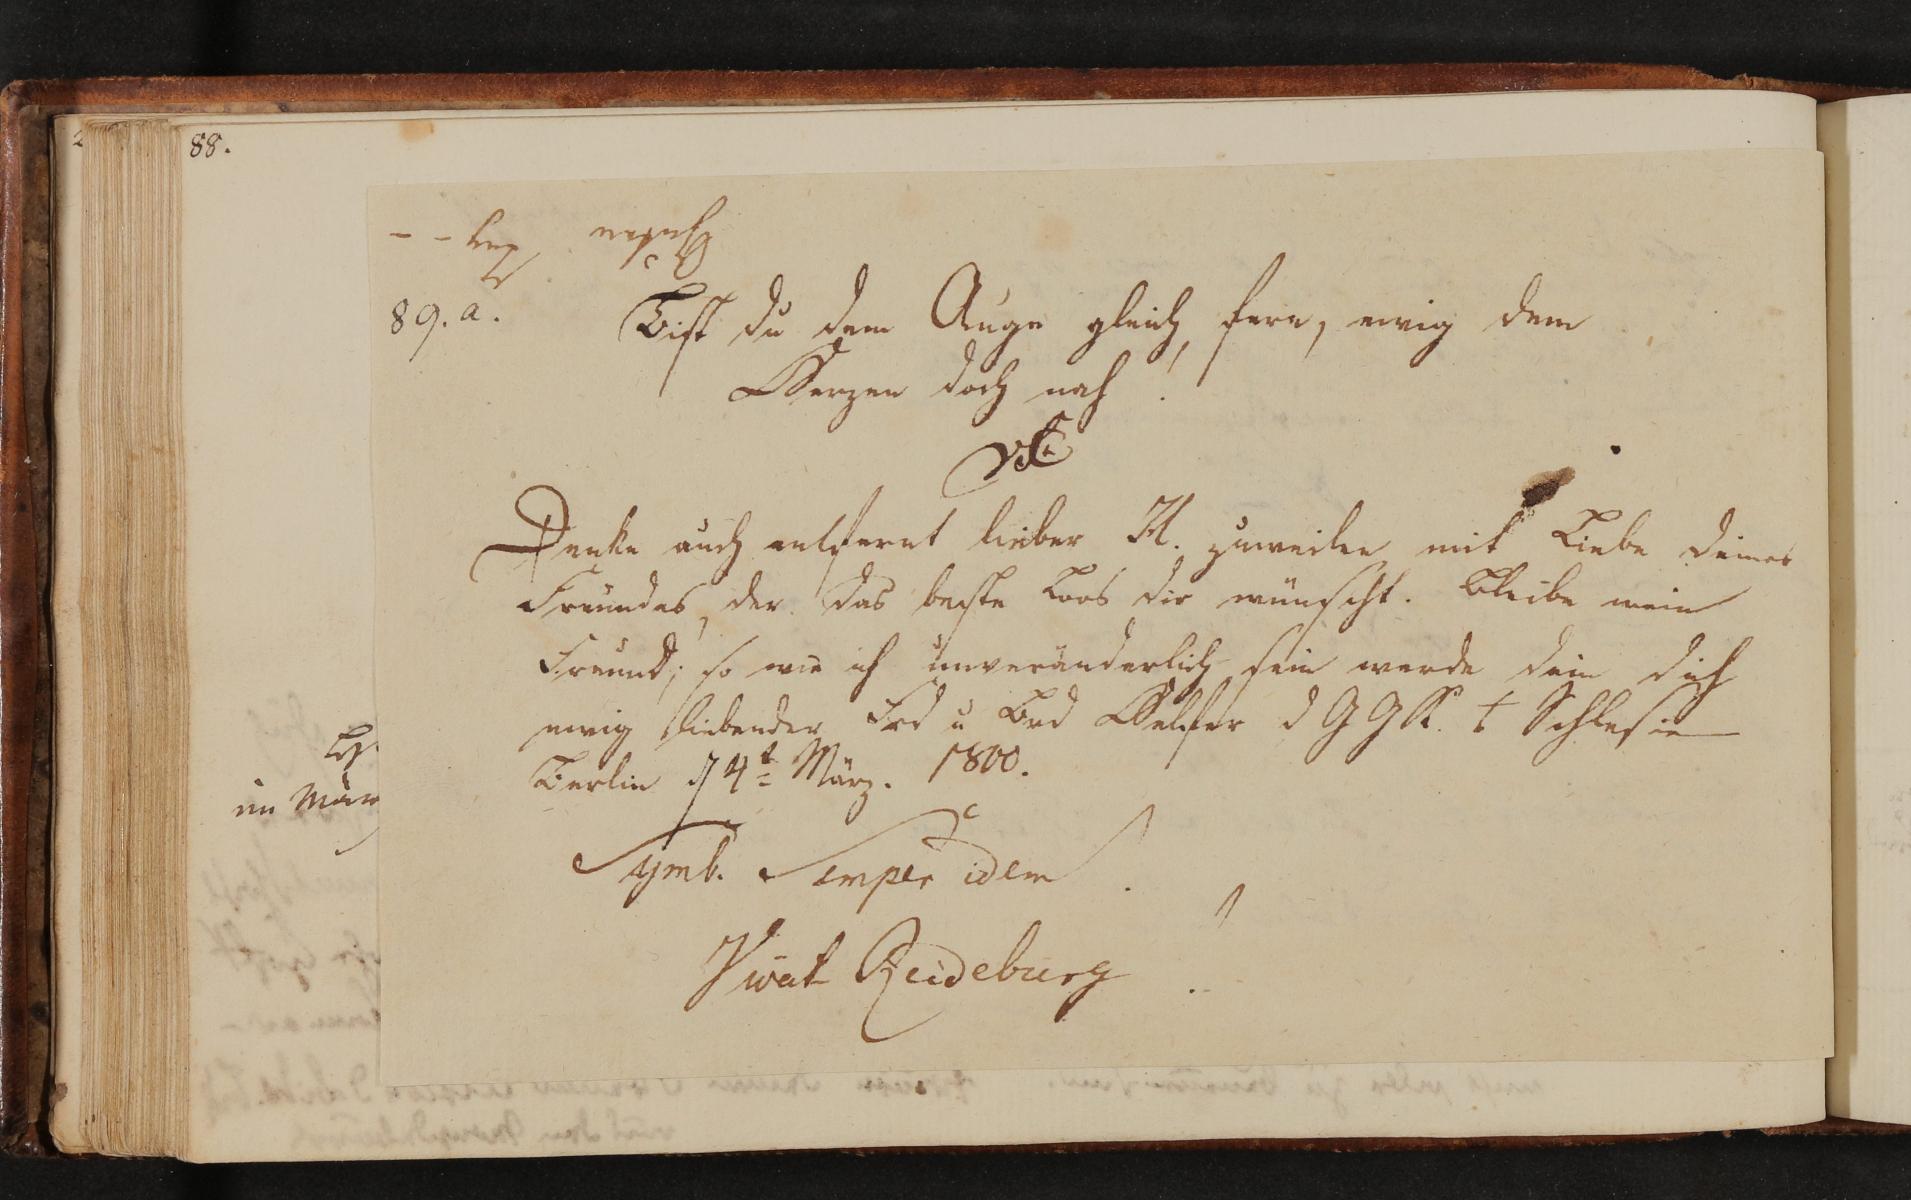 88.
89.a.
Bist du dem Auge gleich fern, ewig dem
Herzen doch nah!
Denke auch entfernt lieber H. zuweilen mit Liebe deines
Freundes, der das beste Loos dir wünscht. Bleibe mein
Freund; so wie ich unveränderlich sein werde dein dich
ewig liebender Frd u Brd d G G K. † Schlesien
Berlin d 4t März. 1800.
Symb. Semper idem!
Vivat Reideburg!
im März